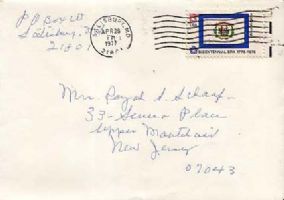 PO Box
Salisbury,
21801
SALISBURY, MD
APR 26
PM
1977
BICENTENNIAL ERA 1776-1976
Mrs. Royal S. Schaaf
33- Senior Place
Upper Montclair
New Jersey
07043